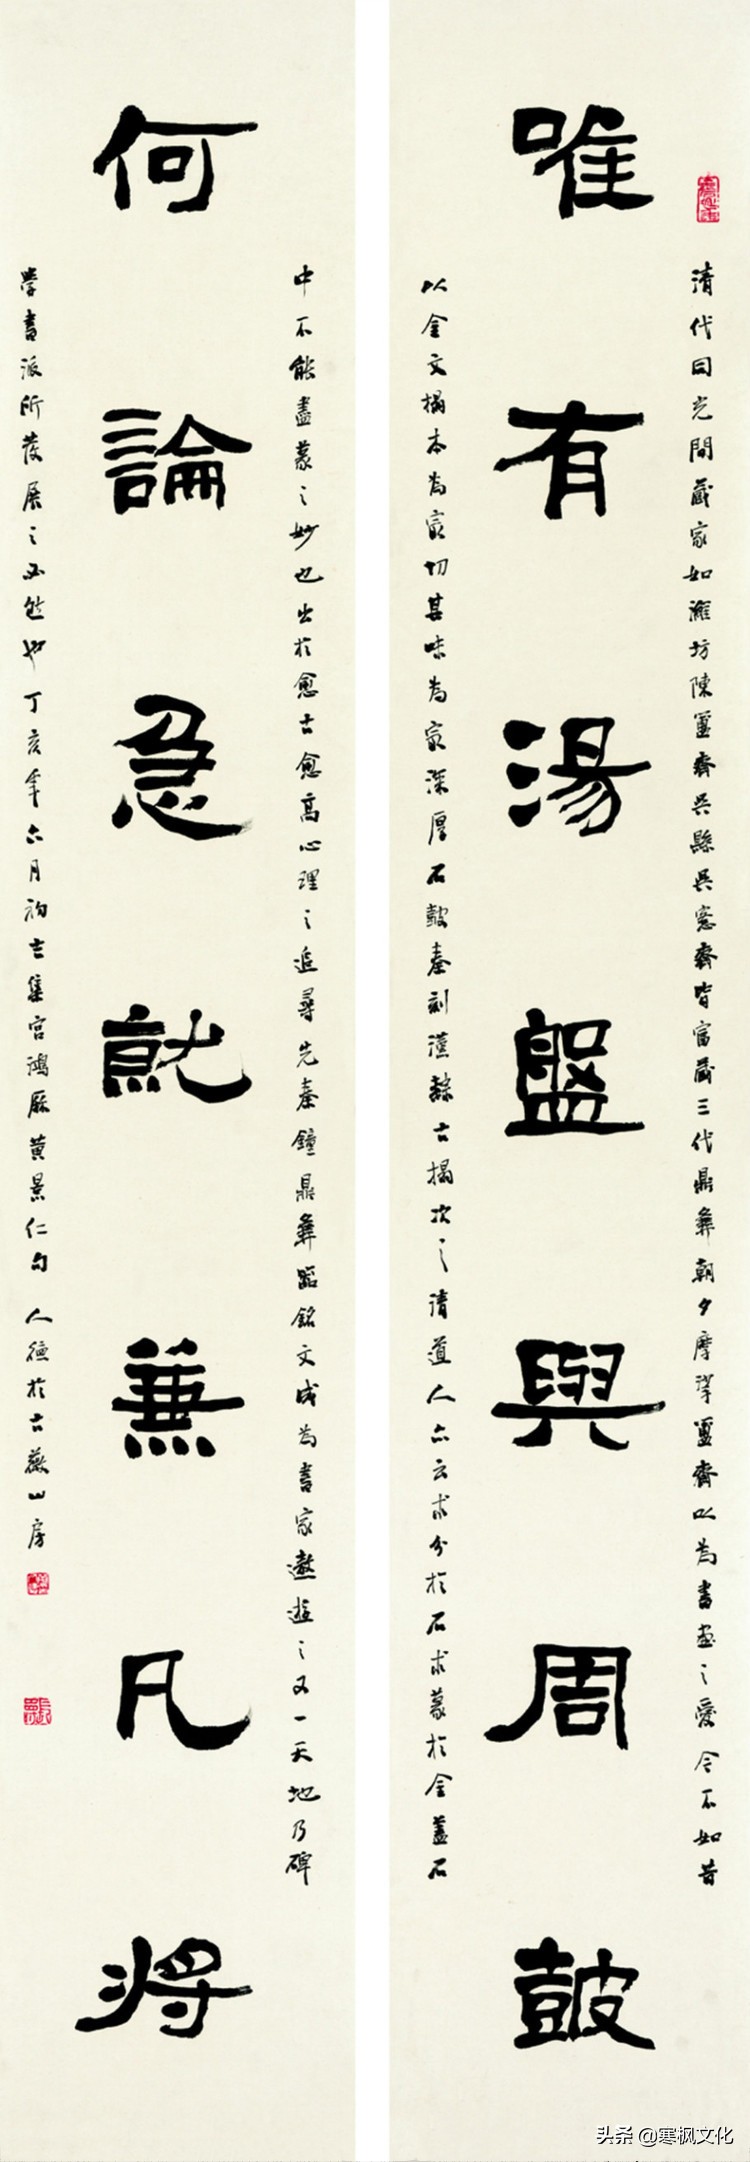 唯有湯盤與周鼓
清代同光間藏家如濰坊陳簠齋吳縣吳愙齋皆富藏三代鼎彝朝夕摩挲簠齋以為書畫之愛今不如昔
以金文搨本為最切其味為最深厚石鼓秦刻漢隸古搨次之清道人亦云求分於石求篆於金蓋石
中不能盡篆之妙也出於愈古愈高心理之追尋先秦鐘鼎彝器銘文成為書家遨遊之又一天地乃碑
何論急就兼凡將
學書派所發展之必然也丁亥年六月初吉集宮鴻厤黃景仁句 人德於古薇山房
头条 @寒枫文化